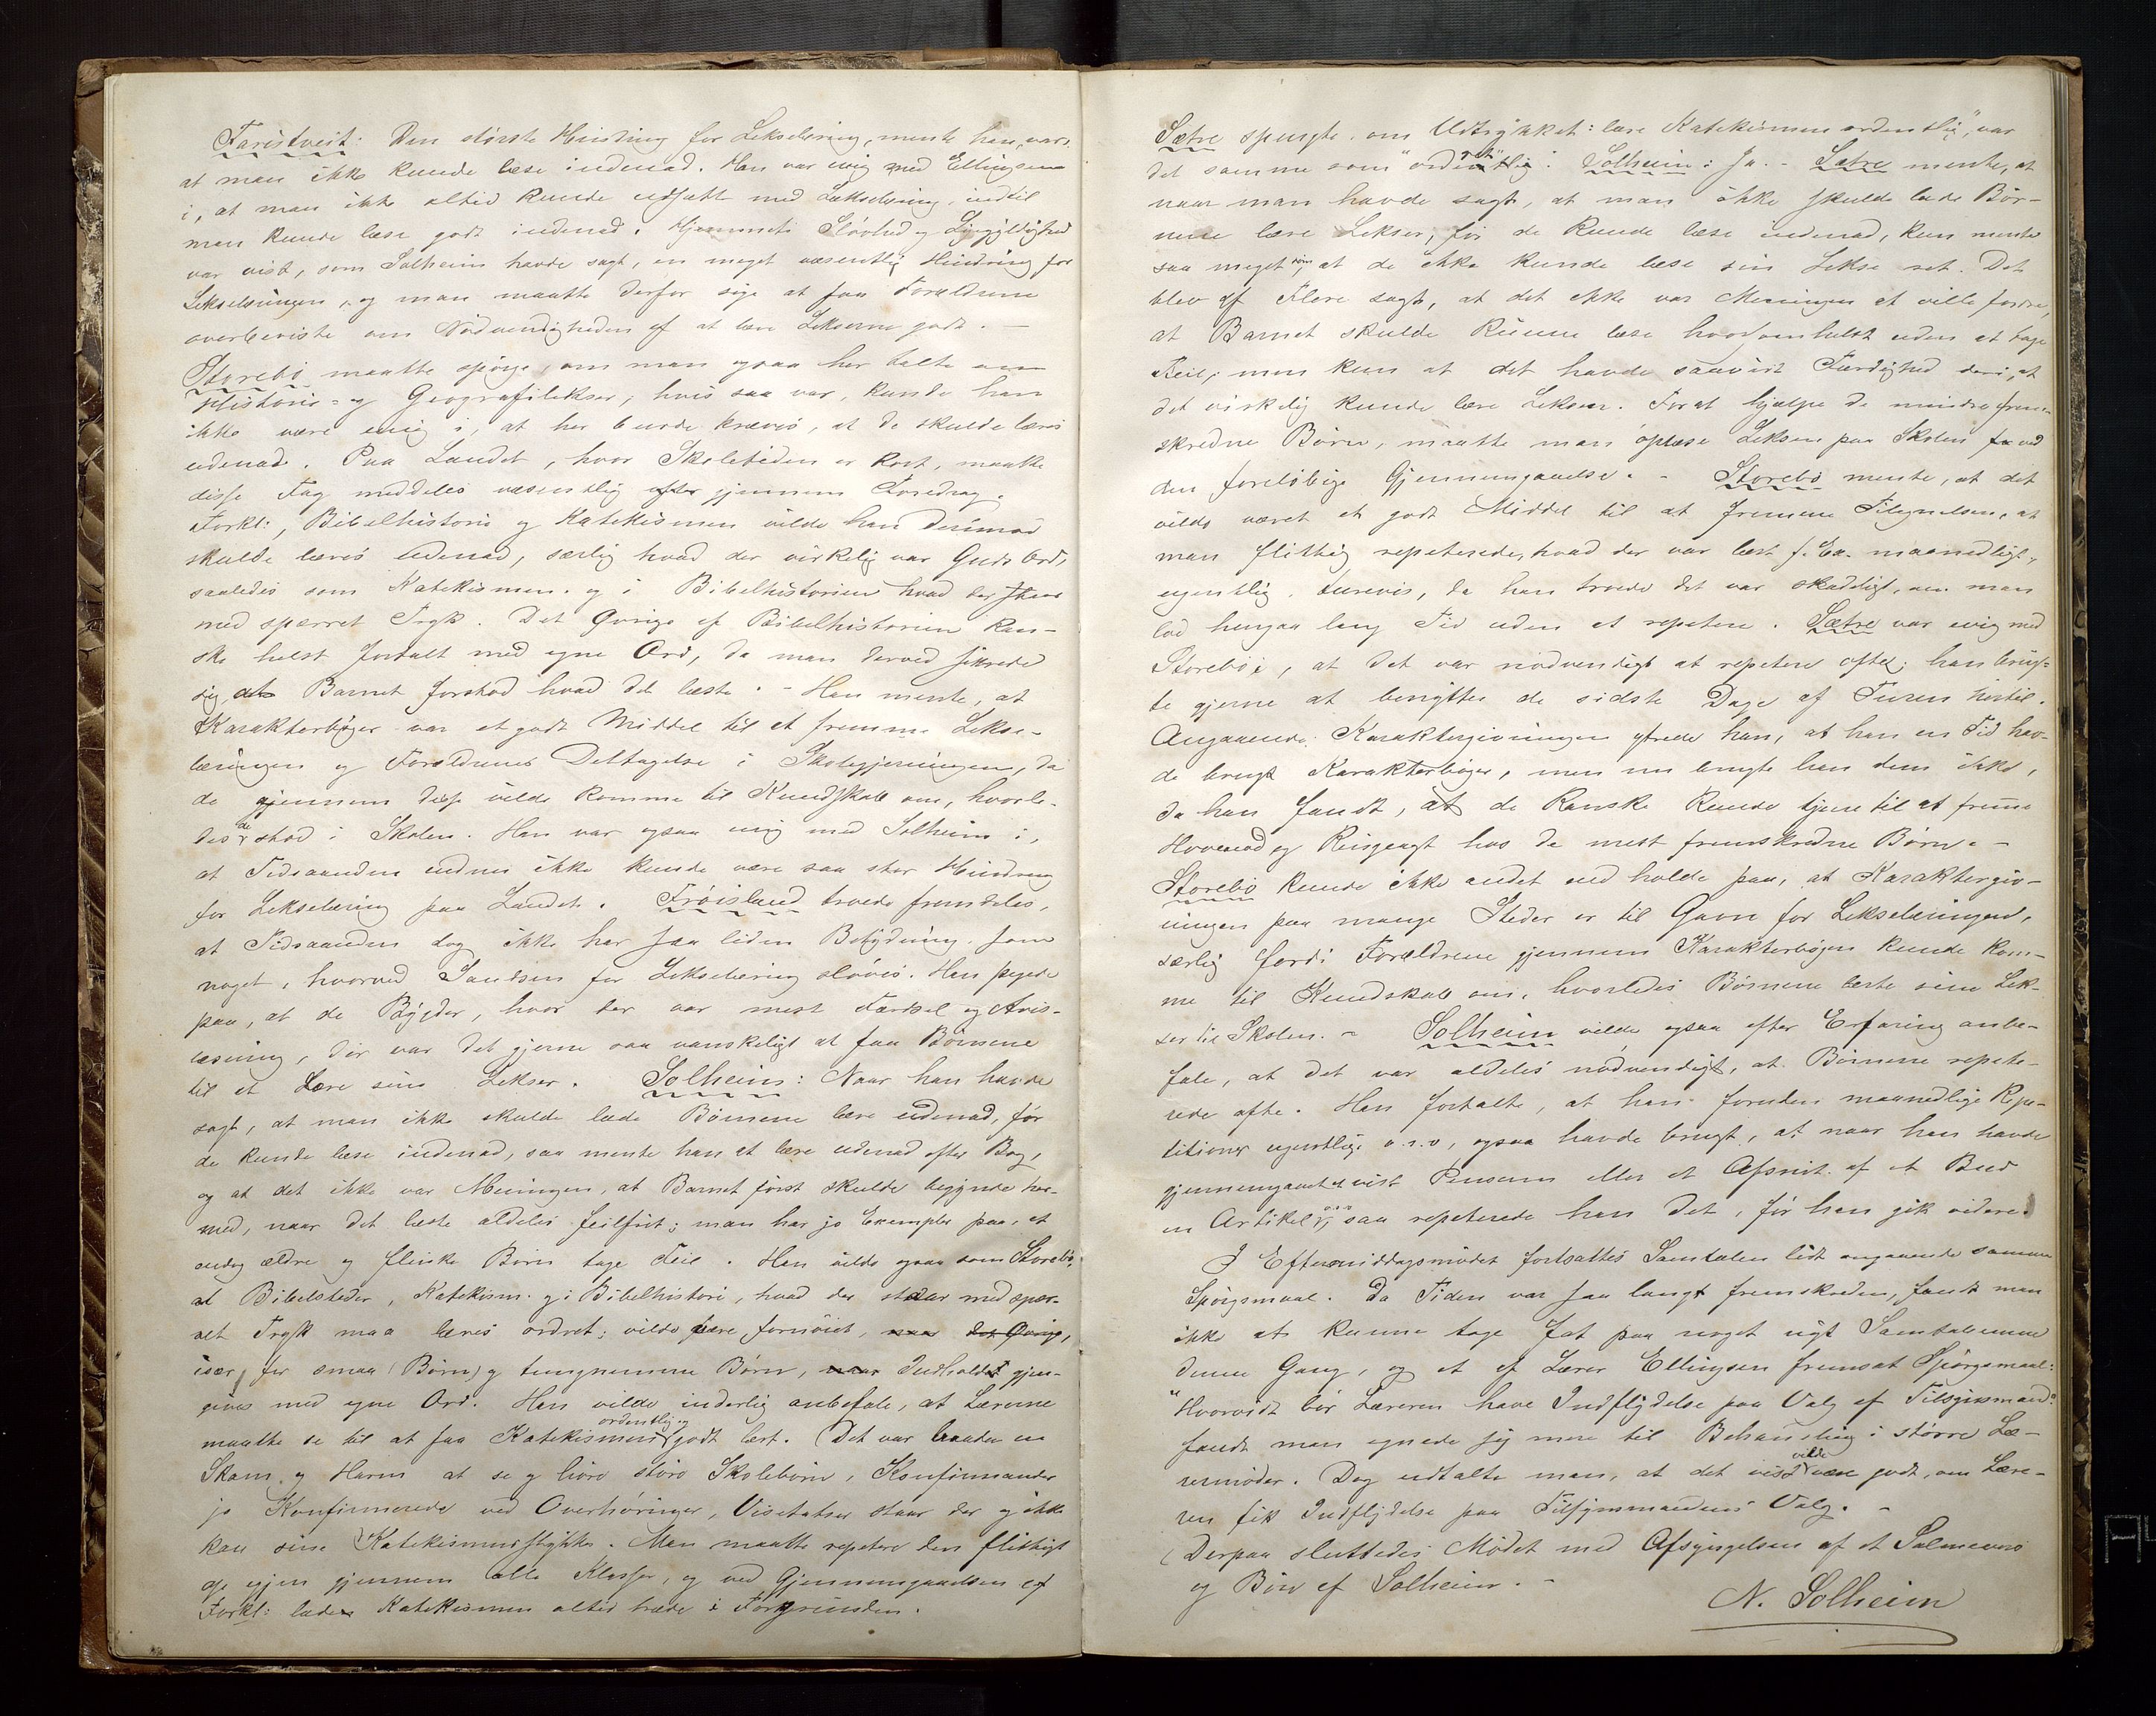 Faristveit: Den største Hindring for Lekselæring, mente han, var,
at man ikke kunde læse indenad. Han var enig med Ellingsen
i, at man ikke altid kunde udsætte med Lekselæring, indtil
man kunde læse godt indenad. Hjemmets Sløvhed og Ligegyldighed
var vist, som Solheim havde sagt, en meget væsentlig Hindring for
Lekselæsningen, og man maatte derfor sige at faa Forældrene
overbeviste om Nødvendigheden af at lære Lekserne godt. –
Storebø maatte spørge, om man ogsaa her talte om
Historie- og Geografilekser; hvis saa var, kunde han
ikke være enig i, at her burde kræves, at de skulde læres
udenad. Paa Landet, hvor Skoletiden er kort, maatte
disse Fag meddeles væsentlig gjennem Foredrag.
Forkl:, Bibelhistorie og Katekismen vilde han derimod
skulde læres udenad, særlig hvad der virkelig var Guds Ord,
saaledes som Katekismen. og i Bibelhistorien hvad der staar
med spærret Tryk. Det øvrige af Bibelhistorien kan-
ske helst fortalt med egne Ord, da man derved sikrede
sig, at Barnet forstod hvad det læste. – Han mente, at
Karakterbøger var et godt Middel til at fremme Lekse-
læringen og Forældrenes Deltagelse i Skolegjerningen, da
de gjennem disse vilde komme til Kundskab om, hvorle-
des de stod i Skolen. Han var ogsaa enig med Solheim i,
at Tidsaanden endnu ikke kunde være saa stor Hindring
for Lekselæring paa Landet. Frøisland troede fremdeles,
at Tidsaanden dog ikke har saa liden Betydning som
noget, hvorved Sandsen for Lekselæring sløves. Han pegede
paa, at de Bygder, hvor der var mest Færdsel og Avis-
læsning, der var det gjerne saa vanskeligt at faa Børnene
til at lære sine Lekser. Solheim: Naar han havde
sagt, at man ikke skulde lade Børnene lære udenad, før
de kunde læse indenad, saa mente han at lære udenad efter Bog,
og at det ikke var Meningen, at Barnet først skulde begynde her-
med, naar det læste aldeles feilfrit; man har jo Exempler paa, at
endog ældre og flinke Børn tage Feil. Han vilde ogsaa som Storebø,
at Bibelsteder, Katekism. og i Bibelhistorie, hvad der staar med spær-
ret Tryk maa læres ordret; vilde være fornøiet, naar det Øvrige,
især for smaa (Børn) og tungnemme Børn, naar Indholdet gjen-
gives med egne Ord. Han vilde inderlig anbefale, at Lærerne
maatte se til at faa Katekismen ordentlig og godt lært. Det var baade en
Skam og Harm at se og høre store Skolebørn, Konfirmander
jo Konfirmerede ved Overhøringer, Visitatser staar der og ikke
kan sine Katekismusstykker. Man maatte repetere den flittigt
op igjen gjennem alle Klasser, og ved Gjennemgaaelsen af
Forkl: lade Katekismen altid træde i Forgrunden.
Sætre spurgte om Udtrykket: "lære Katekismen ordentlig", var
det samme som "ordret". Solheim: Ja. – Sætre mente, at
naar man havde sagt, at man ikke skulde lade Bør-
nene lære Lekser, før de kunde læse indenad, kun mente
saa meget som, at de ikke kunde læse sin Lekse ret. Det
blev af Flere sagt, at det ikke var Meningen at ville fordre,
at Barnet skulde kunne læse hvorsomhelst uden at tage
Feil, men kun at det havde saavidt Færdighed deri, at
det virkelig kunde lære Leksen. For at hjælpe de mindre frem-
skredne Børn, maatte man oplæse Leksen paa Skolen ved
den foreløbige Gjennemgaaelse. – Storebø mente, at det
vilde været et godt Middel til at fremme Tilegnelsen, at
man flittig repeterede, hvad der var læst f. Ex. maanedligt,
ugentlig, turevis, da han troede det var skadeligt, om man
lod hengaa lang Tid uden at repetere. Sætre var enig med
Storebø i, at det var nødvendigt at repetere ofte; han brug-
te gjerne at benytte de sidste Dage af Turen hertil.
Angaaende Karaktergivningen ytrede han, at han en Tid hav-
de brugt Karakterbøger, men nu brugte han dem ikke,
da han fandt, at de kanske kunde tjene til at fremme
Hovmod og Ringeagt hos de mest fremskredne Børn. –
Storebø kunde ikke andet end holde paa, at Karaktergiv-
ningen paa mange Steder er til Gavn for Lekselæringen,
særlig fordi Forældrene gjennem Karakterbogen kunde kom-
me til Kundskab om, hvorledes Børnene lærte sine Lek-
ser til Skolen. – Solheim vilde ogsaa efter Erfaring anbe-
fale, at det var aldeles nødvendigt, at Børnene repete-
rede ofte. Han fortalte, at han foruden maanedlige Repe-
titioner ugentlige o.s.v, ogsaa havde brugt, at naar han havde
gjennemgaaet et vist Pensum eller et Afsnit af et Bud
en Artikel o.s.v, saa repeterede han det, før han gik videre.
I Eftermiddagsmødet fortsattes Samtalen lidt angaaende samme
Spørgsmaal. Da Tiden var saa langt fremskreden, fandt man
ikke at kunne tage fat paa noget nyt Samtaleemne
denne Gang, og et af Lærer Ellingsen fremsat Spørgsmaal:
"Hvorvidt bør Læreren have Indflydelse paa Valg af Tilsynsmænd"
fandt man egnede sig mere til Behandling i større Læ-
rermøder. Dog udtalte man, at det vist vilde være godt, om Lære-
ren fik Indflydelse paa Tilsynsmandens Valg. –
Derpaa sluttedes Mødet med Afsyngelsen af et Salmevers
og Bøn af Solheim. –
N. Solheim